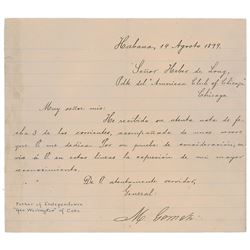 Habana, 14 Agosto 1899.
Señor Heber de Long,
Pdte del "American Club of Chicago"
Chicago
Muy señor mio:
He recibido su atenta nota de fe-
cha 3 de los corrientes, acompañada de unos versos
que V. me dedica. Por su prueba de consideración, en-
vio á V. en estas líneas la expresión de mi mayor
reconocimiento.
De V. atentamente servidor,
General:
M. Gomez
Father of Independence
"Geo Washington" of Cuba